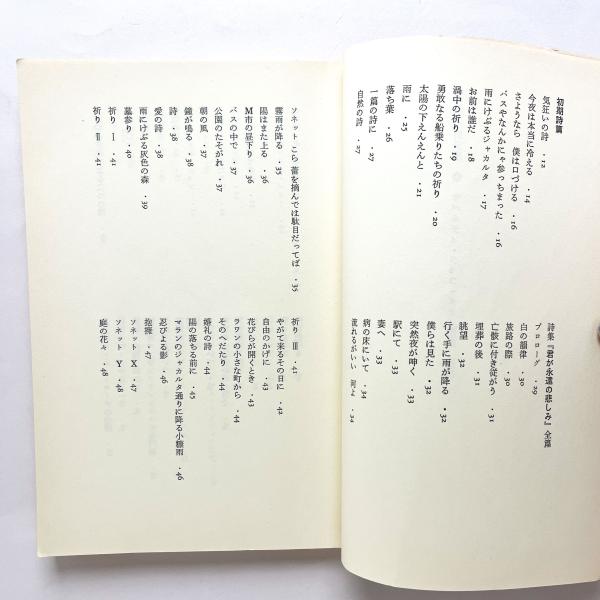 初期詩篇
気狂いの詩 ・12
今夜は本当に冷える ・14
さようなら 僕は口づける ・16
バスやなんかにゃ参っちまった ・16
雨にけぶるジャカルタ ・17
お前は誰だ ・18
渦中の祈り ・19
勇敢なる船乗りたちの祈り ・20
太陽の下えんえんと ・21
雨に ・25
落ち葉 ・26
一篇の詩に ・27
自然の詩 ・27
詩集『君が永遠の悲しみ』全篇
プロローグ ・29
白の韻律 ・30
旅路の際 ・30
亡骸に付き従がう ・31
埋葬の後 ・31
眺望 ・32
行く手に雨が降る ・32
僕らは見た ・32
突然夜が呻く ・33
駅にて ・33
妻へ ・33
病の床にいて ・34
流れるがいい 河よ ・34
ソネット こら 蕾を摘んでは駄目だってば ・35
霧雨が降る ・35
陽はまた上る ・36
M市の昼下り ・36
バスの中で ・37
公園のたそがれ ・37
朝の風 ・37
鐘が鳴る ・38
詩 ・38
愛の詩 ・38
雨にけぶる灰色の森 ・39
墓参り ・40
祈り Ⅰ ・41
祈り Ⅱ ・41
祈り Ⅲ ・41
やがて来るその日に ・42
自由のかげに ・43
花びらが開くとき ・43
ラワンの小さな町から ・44
そのへだたり ・44
婚礼の詩 ・44
陽の落ちる前に ・45
マランのジャカルタ通りに降る小糠雨 ・46
忍びよる影 ・46
抱擁 ・47
ソネット X ・47
ソネット Y ・48
庭の花々 ・48